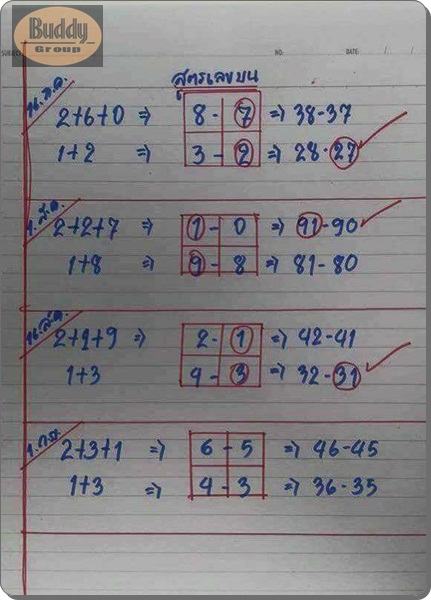 Buddy
Group
SUBJECT
NO:
DATE
สูตรเลขบน
16.ก.ค.
2+6+0 ⇒ 8-7 ⇒ 38-37
1+2 ⇒ 3-2 ⇒ 28-27
1.ส.ค.
2+2+7 ⇒ 1-0 ⇒ 91-90
1+8 ⇒ 9-8 ⇒ 81-80
16.ส.ค.
2+1+9 ⇒ 2-1 ⇒ 42-41
1+3 ⇒ 4-3 ⇒ 32-31
1.ก.ย.
2+3+1 ⇒ 6-5 ⇒ 46-45
1+3 ⇒ 4-3 ⇒ 36-35